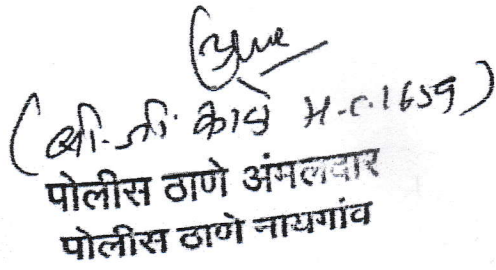 (व्ही.जी. काळे H.C.1659)
पोलीस ठाणे अंमलदार
पोलीस ठाणे नायगांव